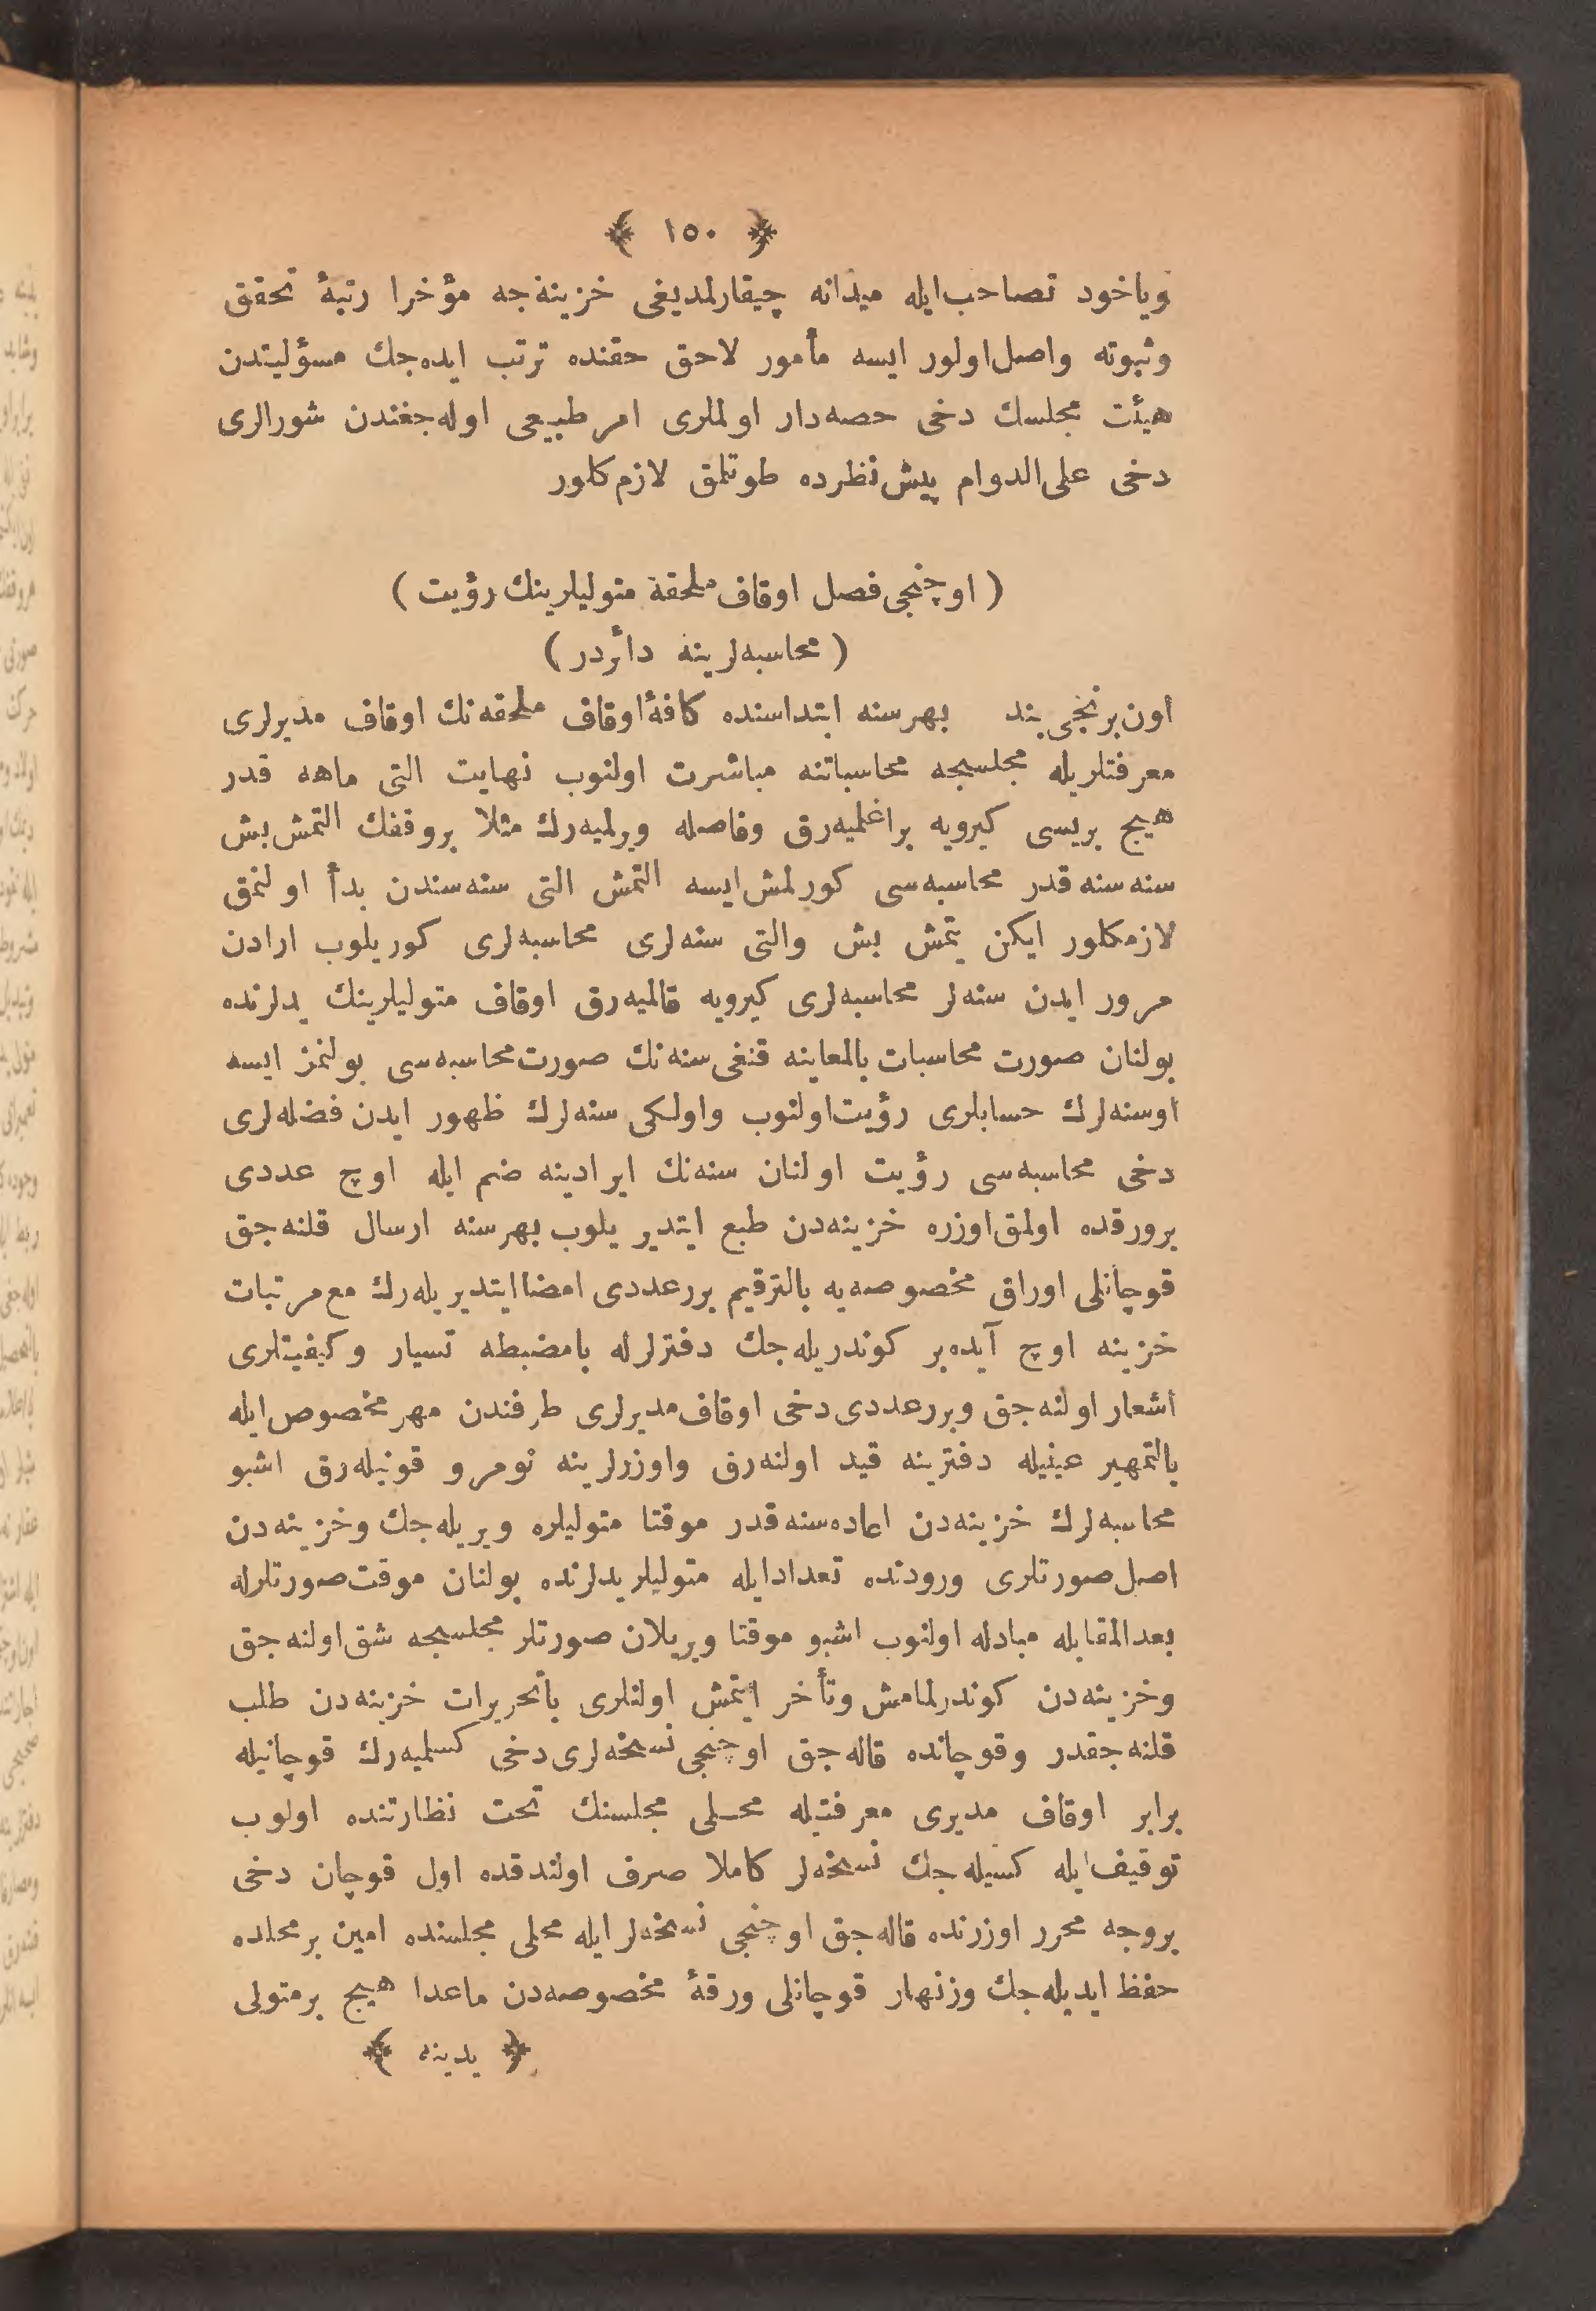 ﴿ ١٥٠ ﴾
وياخود تصاحب ايله ميدانه چيقارلمديغى خزينه‌جه مؤخرا رتبۀ تحقق
وثبوته واصل اولور ايسه مأمور لاحق حقنده ترتب ايده‌جك مسؤليتدن
هيئت مجلسك دخى حصه‌دار اولملرى امر طبيعى اوله‌جغندن شورالرى
دخى على‌الدوام پيش نظرده طوتلمق لازم كلور
( اوچنجى فصل اوقاف ملحقة متوليلرينك رؤيت )
( محاسبه‌لرينه دائردر )
اون برنجى بند بهر سنه ابتداسنده كافۀ اوقاف ملحقه‌نك اوقاف مديرلرى
معرفتلريله مجلسجه محاسباتنه مباشرت اولنوب نهايت التى ماهه قدر
هيچ بريسى كيرويه براغلميه‌رق وفاصله ويرلميه‌رك مثلا بروقفك التمش بش
سنه سنه قدر محاسبه‌سى كورلمش ايسه التمش التى سنه سندن بدأ اولنمق
لازمكلور ايكن يتمش بش والتى سنه‌لرى محاسبه‌لرى كوريلوب ارادن
مرور ايدن سنه‌لر محاسبه‌لرى كيرويه قالميه‌رق اوقاف متوليلرينك يدلرنده
بولنان صورت محاسبات بالمعاينه قنغى سنه‌نك صورت محاسبه‌سى بولنمز ايسه
اوسنه‌لرك حسابلرى رؤيت اولنوب واولكى سنه‌لرك ظهور ايدن فضله‌لرى
دخى محاسبه‌سى رؤيت اولنان سنه‌نك ايرادينه ضم ايله اوچ عددى
برورقده اولمق اوزره خزينه‌دن طبع ايتديريلوب بهر سنه ارسال قلنه‌جق
قوچانلى اوراق مخصوصه‌يه بالترقيم برر عددى امضا ايتديريله‌رك مع مرتبات
خزينه اوچ آيده بر كوندريله‌جك دفترلرله بامضبطه تسيار وكيفيتلرى
اشعار اولنه‌جق وبرر عددى دخى اوقاف مديرلرى طرفندن مهر مخصوص ايله
بالتمهير عينيله دفترينه قيد اولنه‌رق واوزرلرينه نومرو قونيله‌رق اشبو
محاسبه‌لرك خزينه‌دن اعاده‌سنه قدر موقتا متوليلره ويريله‌جك وخزينه‌دن
اصل صورتلرى ورودنده تعداد ايله متوليلر يدلرنده بولنان موقت صورتلرله
بعدالمقابله مبادله اولنوب اشبو موقتا ويريلان صورتلر مجلسجه شق اولنه‌جق
وخزينه‌دن كوندرلمامش وتأخر ايتمش اولنلرى باتحريرات خزينه‌دن طلب
قلنه‌جقدر وقوچانده قاله‌جق اوچنجى نسخه‌لرى دخى كسلميه‌رك قوچانيله
برابر اوقاف مديرى معرفتيله محلى مجلسنك تحت نظارتنده اولوب
توقيف ايله كسيله‌جك نسخه‌لر كاملا صرف اولندقده اول قوچان دخى
بروجه محرر اوزرنده قاله‌جق اوچنجى نسخه‌لر ايله محلى مجلسنده امين برمحلده
حفظ ايديله‌جك وزنهار قوچانلى ورقۀ مخصوصه‌دن ماعدا هيچ برمتولى
﴿ يدينه ﴾